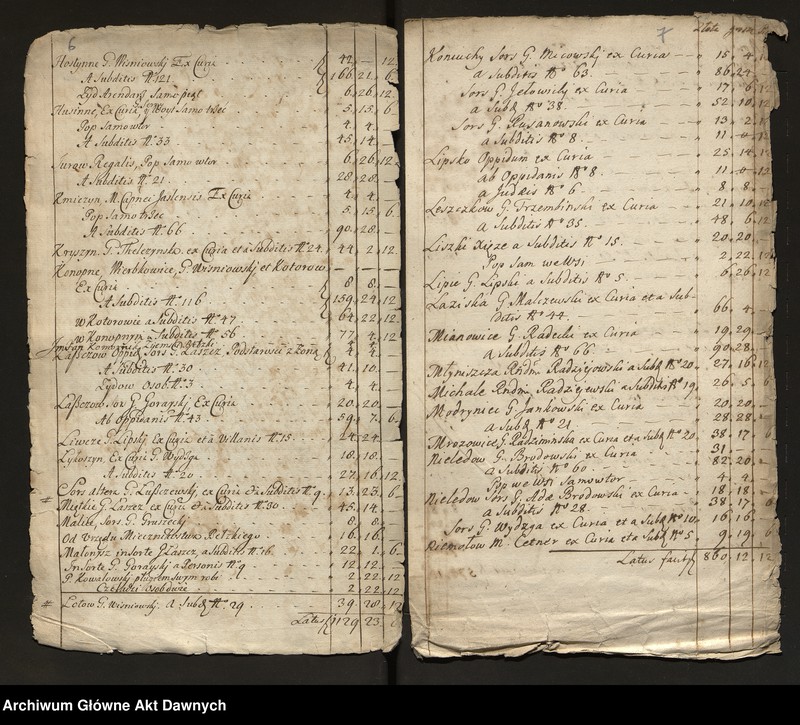 6
Hostynne G. Wisniowskj Ex Curie 42 — 12
A Subditis No. 121 166 21 6
Żyd Arendarz Samopiąt 6 26 12
Husinne, Ex Curia G. Woys Samo trzeć 5 15 6
Pop Samowtor 4 4
A Subditis No. 33 45 14
Surow Regalis, Pop Samo wtor 6 26 12
A Subditis No. 21 28 28
Kmiczyn, M. Capnei Jaslensis Ex Curie 4 4
Pop Samo trzec 5 15 6
A Subditis No. 66 90 28
Kryszyn, G. Thelezynsk. ex Curia et a Subditis No. 24 44 2 12
Konopne, Wierbkowice, G. Wisniowskj et Kotorow
Ex Curie 8 8
A Subditis No. 116 159 24 12
w Kotorowie a Subditis No. 47 64 22 12
w Konopnym a Subditis No. 56 77 4 12
Łaszczow Oppid. Sors G. Laszcz Podstarości z Żoną 4 4
A Subditis No. 30 41 10
Zydow Osob No. 3 4 4
Laszczow Sor G. Gorayskj Ex Curie 20 20
Ab Oppidanis No. 43 59 7 6
Liwcze G. Lipskj Ex Curie et a Villanis No. 15 24 24
Lykoszyn, Ex Curie G. Wydzga 18 18
A Subditis No. 20 27 16 12
Sors altera G. Łuszczewskj, ex Curie & a Subditis No. 9 13 23 6
Mętkie G. Laszcz ex Curie & a Subditis No. 30 45 14
Malice, Sors G. Gruszeckj 8 8
Od Urzędu Miecznikostwa Bełzkiego 16 16
Małonisz in Sorte G. Laszcz, a Subditis No. 16 22 1 6
In Sorte G. Gorayskj a Personis No. 9 12 12
P. Kowalowskj pługiem swym robi 2 22 12
Czeladzi osobowie 2 22 12
Lotow G. Wisniowskj. a Subd. No. 29 39 20 12
Latus 1129 23
7
Złote grosz
Koniuchy Sors G. Micowskj ex Curia 15 4
a Subditis No 63 86 24
Sors G. Jełowickj ex Curia 17 6 12
a Subd. No 38 52 10 12
Sors G. Rusanowski ex Curia 13 2
a Subditis No 8 11
Lipsko Oppidum ex Curia 25 14
ab Oppidanis No 8 11
a Judæis No 6 8 8
Leszczkow G. Trzembinski ex Curia 21 10 12
a Subditis No 35 48 6 12
Liszki Xięże a Subditis No 15 20 20
Pop Sam we Wsi 2 22 12
Lipie G. Lipski a Subditis No 5 6 26 12
Łaziska G. Maliszewski ex Curia et a Sub-
ditis No 44 66 4
Mianowice G. Radecki ex Curia 19 29
a Subditis No 66 90 28
Młyniszcza Rndm. Radziejowski a Subd. No 20 27 16 12
Michale Rndm. Radziejewski a Subditis No 19 26 5 6
Modryniec G. Jankowski ex Curia 20 20
a Subd. No 21 28 28
Mrozowice G. Radziminska ex Curia et a Subd. No 20 38 17 6
Nieledow G. Brodowski ex Curia 31
a Subditis No 60 82 20
Pop we Wsi Samowtor 4 4
Nieledow Sors G. Adæ Brodowski ex Curia 18 18
a Subditis No 28 38 17
Sors G. Wydzga ex Curia et a Subd. No 10 16 16
Niemołow M. Cetner ex Curia et a Subd. No 5 9 19 6
Latus facit 860 12 12
Archiwum Główne Akt Dawnych